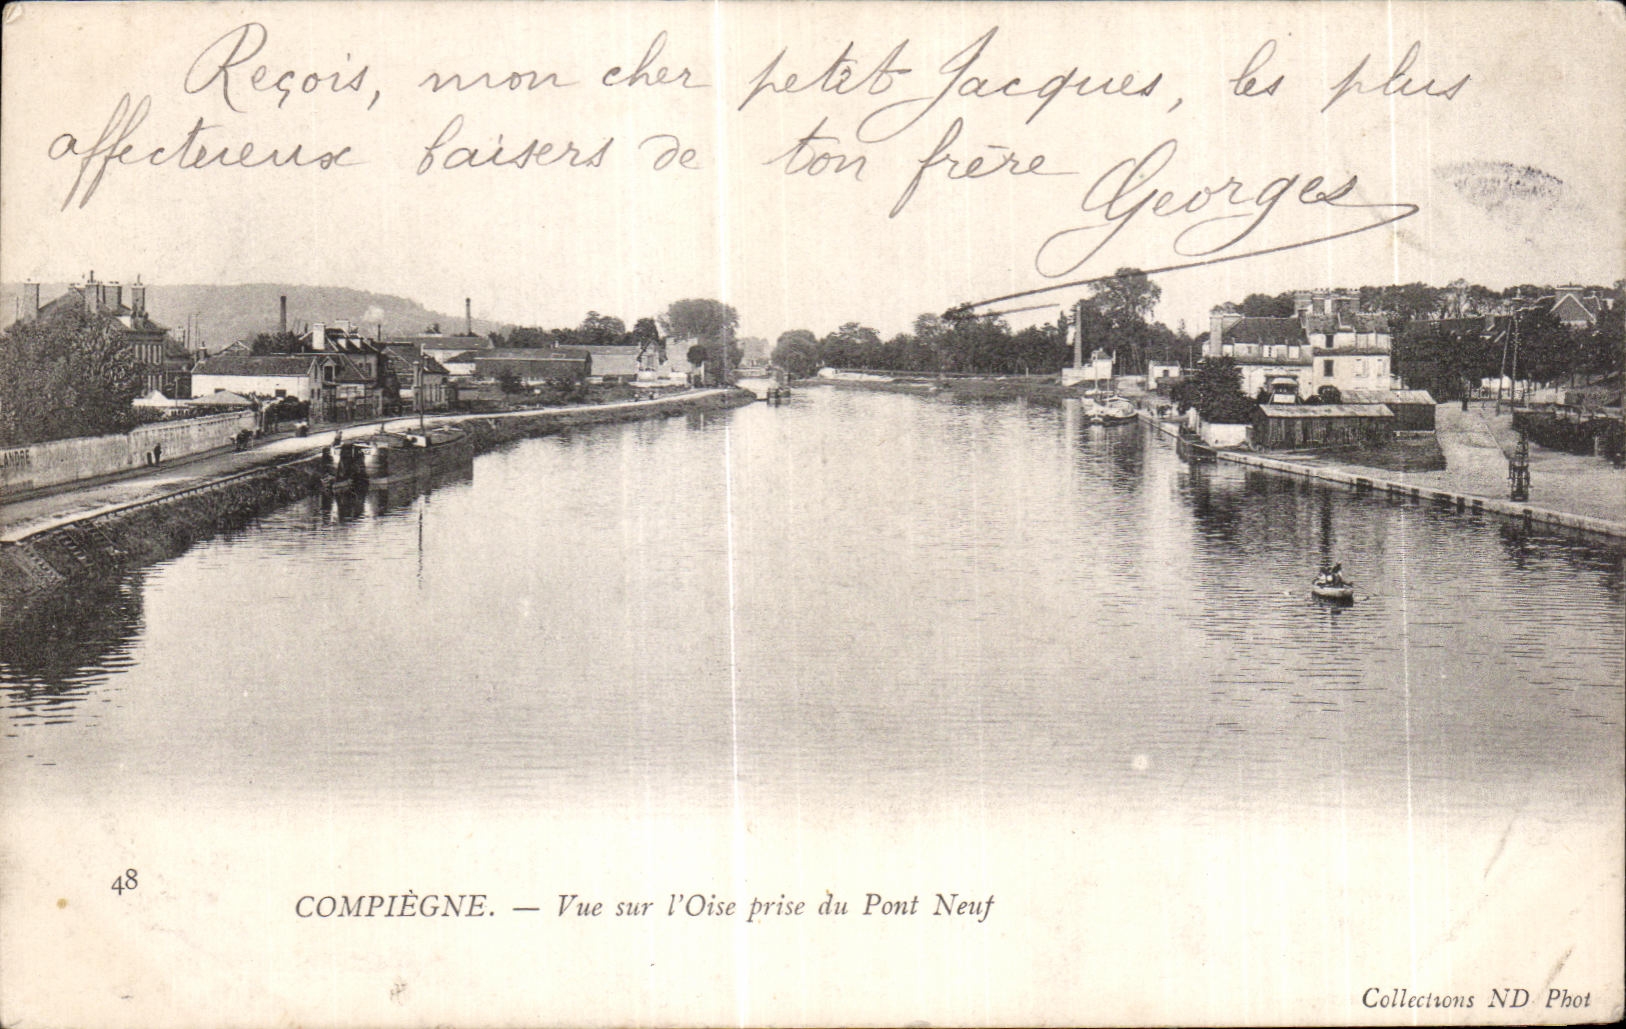 Reçois, mon cher petit Jacques, les plus
affectueux baisers de ton frère
Georges
LANDRE
48
COMPIÈGNE. — Vue sur l'Oise prise du Pont Neuf
Collections ND Phot